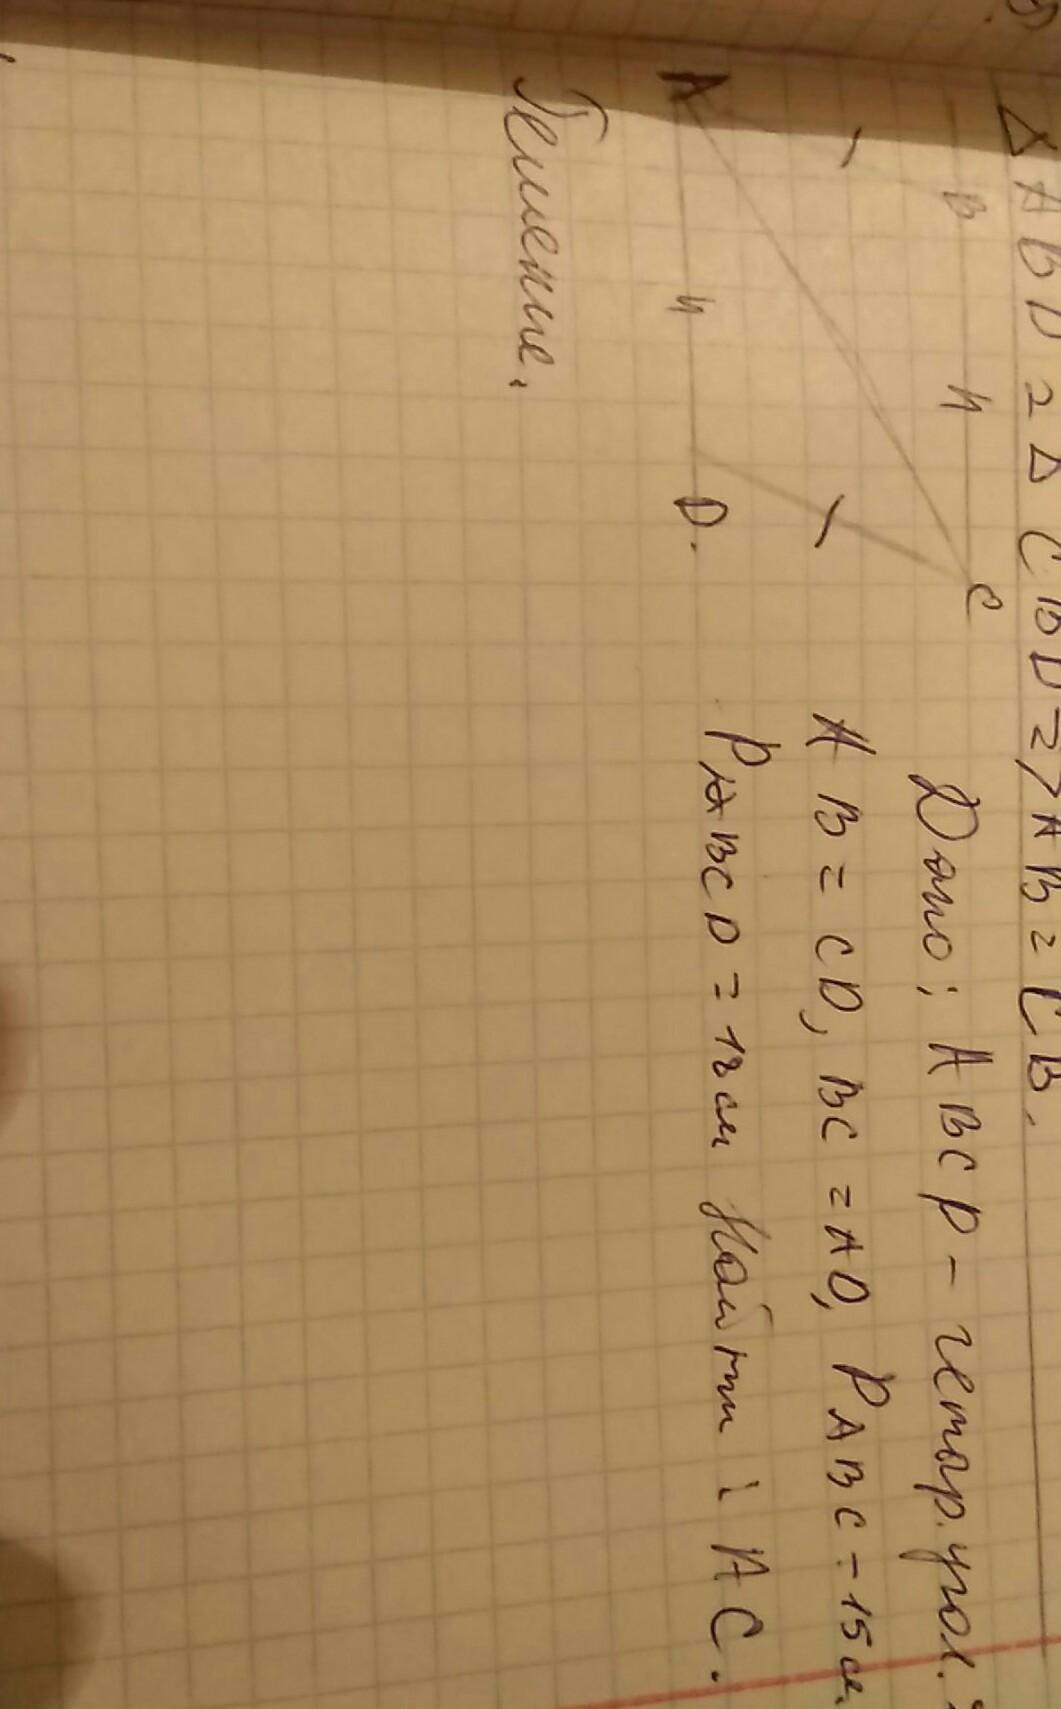 Δ ABD = Δ CBD => AB = CB.
Дано: ABCD - четыр.угол.
AB = CD, BC = AD, PABC = 15 см.
PABCD = 18 см Найти: AC.
B
C
A
D.
Решение.